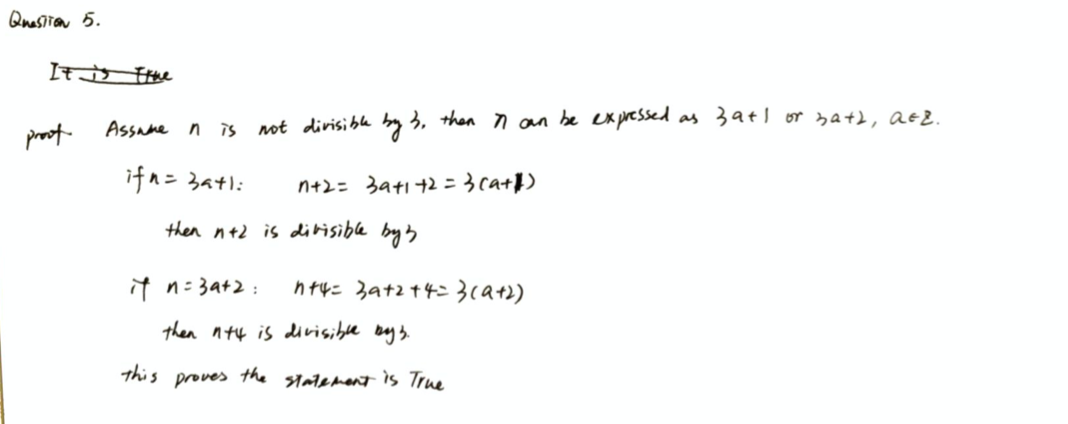 Question 5.
It is True
proof Assume n is not divisible by 3, then n can be expressed as 3a+1 or 3a+2, a∈Z.
if n = 3a+1: n+2 = 3a+1+2 = 3(a+1)
then n+2 is divisible by 3
if n = 3a+2 : n+4 = 3a+2+4 = 3(a+2)
then n+4 is divisible by 3.
this proves the statement is True